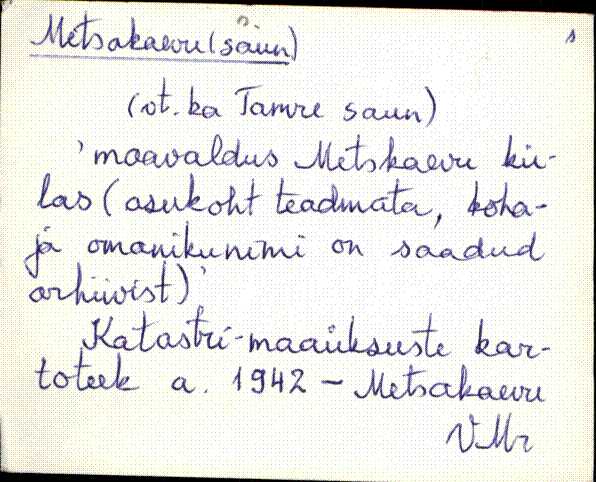 Metsakaevu (saun)
(vt. ka Tamre saun)
'maavaldus Metskaevu kü-
las (asukoht teadmata, koha-
ja omanikunimi on saadud
arhiivist)'
Katastri-maaüksuste kar-
toteek a. 1942 – Metsakaevu
VMr